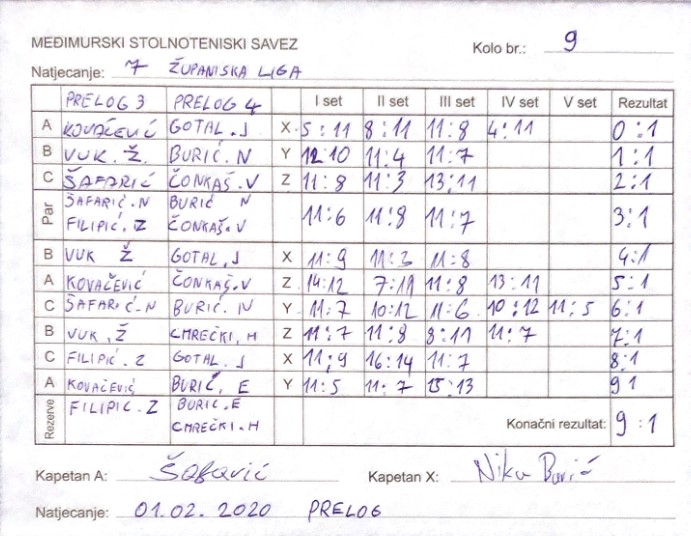 MEĐIMURSKI STOLNOTENISKI SAVEZ Kolo br.: 9
Natjecanje: 7 ŽUPANISKA LIGA
PRELOG 3 PRELOG 4 I set II set III set IV set V set Rezultat
A KOVAČEVIĆ GOTAL.J X 5:11 8:11 11:8 4:11 0:1
B VUK.Ž. BURIĆ.N Y 12:10 11:4 11:7 1:1
C ŠAFARIĆ ČONKAŠ.V Z 11:8 11:3 13:11 2:1
Par ŠAFARIĆ.N BURIĆ N 11:6 11:8 11:7 3:1
FILIPIĆ.Z ČONKAŠ.V
B VUK Ž GOTAL.J X 11:9 11:3 11:8 4:1
A KOVAČEVIĆ ČONKAŠ.V Z 14:12 7:11 11:8 13:11 5:1
C ŠAFARIĆ.N BURIĆ.N Y 11:7 10:12 11:6 10:12 11:5 6:1
B VUK.Ž CMREČKI.M Z 11:7 11:8 8:11 11:7 7:1
C FILIPIĆ.Z GOTAL.J X 11:9 16:14 11:7 8:1
A KOVAČEVIĆ BURIĆ.E Y 11:5 11:7 15:13 9 1
Rezerve FILIPIĆ.Z BURIĆ.E Konačni rezultat: 9:1
CMREČKI.M
Kapetan A: Šafarić Kapetan X: Niko Burić
Natjecanje: 01.02.2020 PRELOG